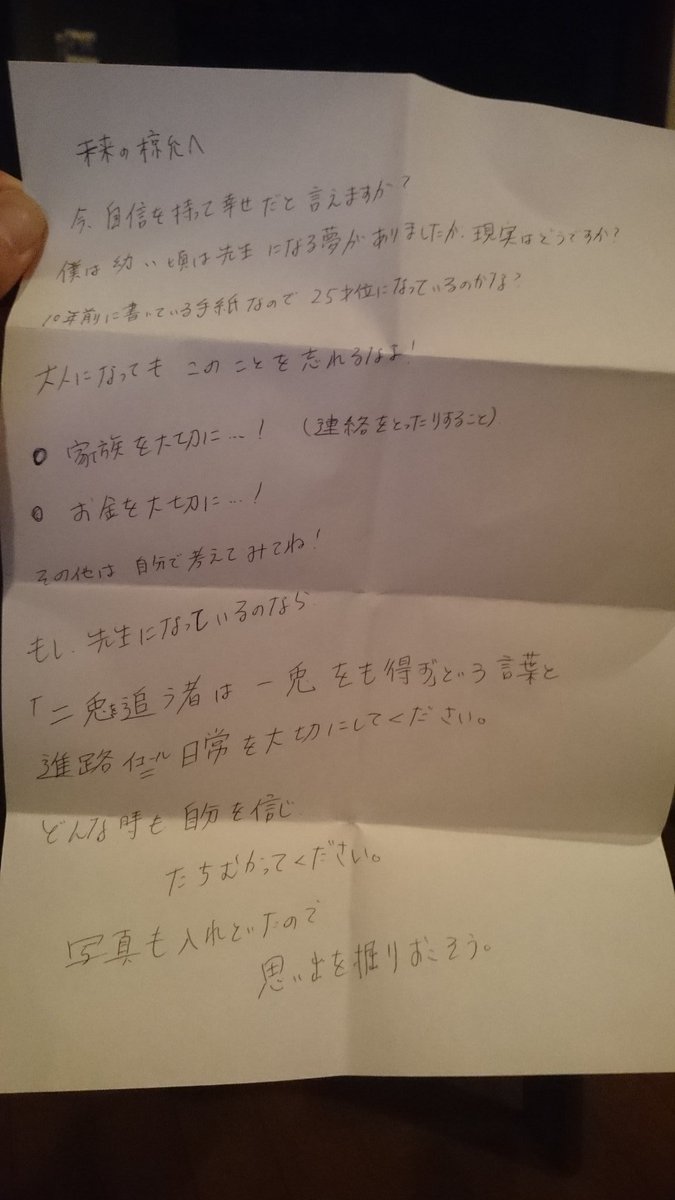 未来の椋允へ
今、自信を持って幸せだと言えますか?
僕は幼い頃は先生になる夢がありましたが、現実はどうですか?
10年前に書いている手紙なので25才位になっているのかな?
大人になってもこのことを忘れるなよ!
● 家族を大切に…!(連絡をとったりすること)
● お金を大切に…!
その他は自分で考えてみてね!
もし、先生になっているのなら
「二兎追う者は一兎をも得ずという言葉と
進路イコール日常を大切にしてください。
どんな時も自分を信じ
たちむかってください。
写真も入れといたので
思い出を掘りおこそう。